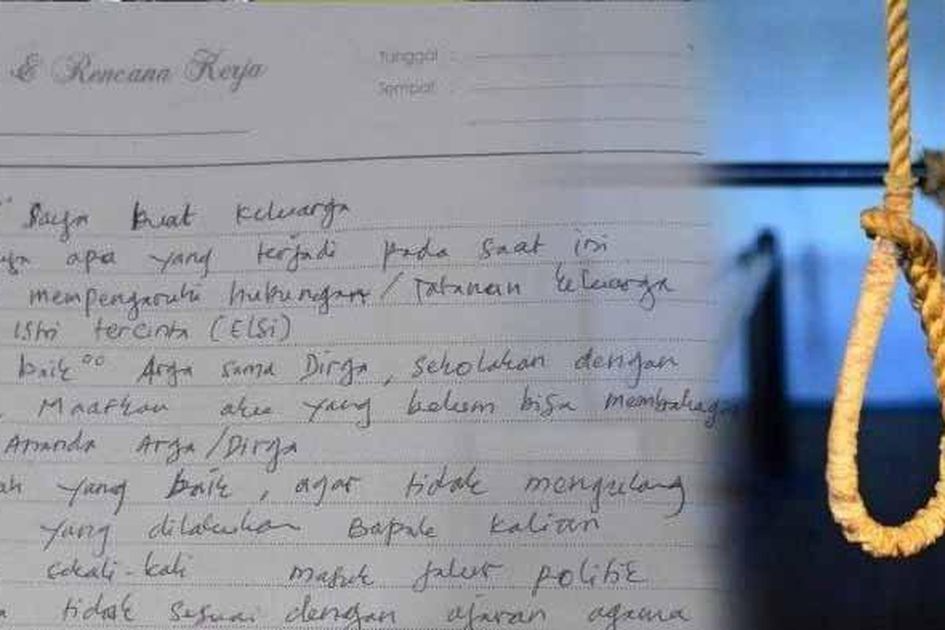 & Rencana Kerja
Tanggal :
Tempat :
Saya buat keluarga
apa yang terjadi pada saat ini
mempengaruhi hubungan / Tatanan keluarga
istri tercinta (Elsi)
baik°° Arga sama Dirga, sekolakan dengan
Maafkan aku yang belum bisa membahagia
Ananda Arga/Dirga
yang baik, agar tidak mengulang
yang dilakukan Bapak kalian
sekali-kali masuk jalur politik
tidak sesuai dengan ajaran agama